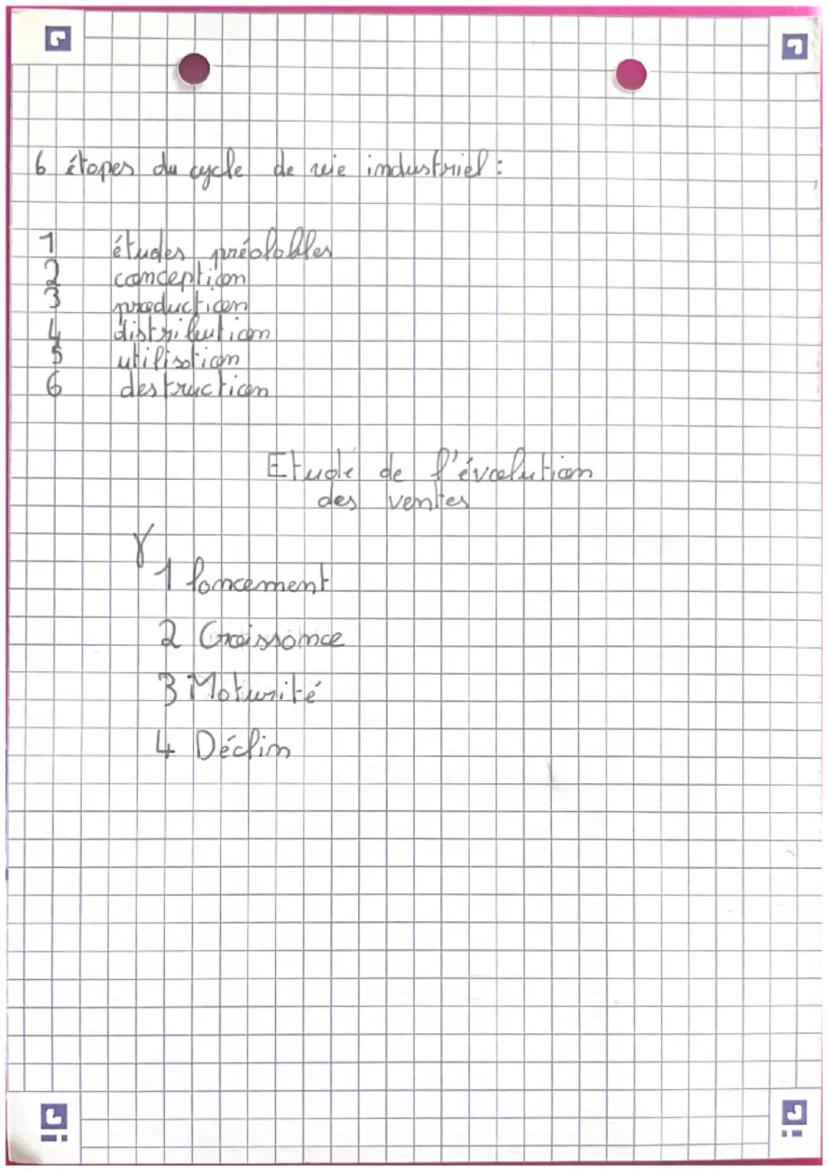 6 étapes du cycle de vie industriel :
1 études préalables
2 conception
3 production
4 distribution
5 utilisation
6 destruction
Etude de l'évolution
des ventes
γ
1 lancement
2 Croissance
3 Maturité
4 Déclin